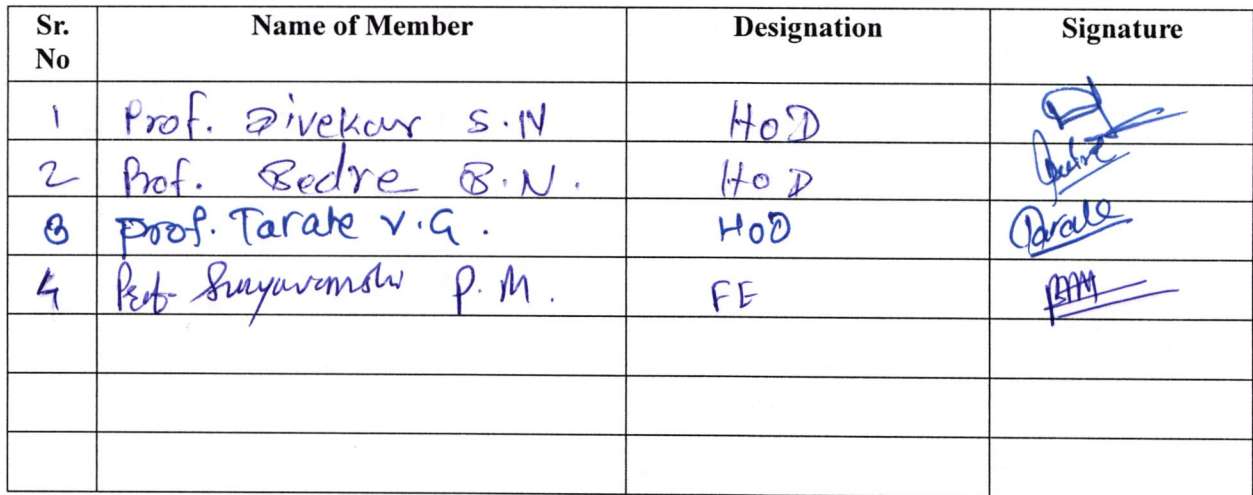 Sr. No Name of Member Designation Signature
1 Prof. Divekar S.N HOD
2 Prof. Bedre B.N. HOD
3 Prof. Tarate V.G. HOD Tarate
4 Prof. Suryavanshi P.M. FE